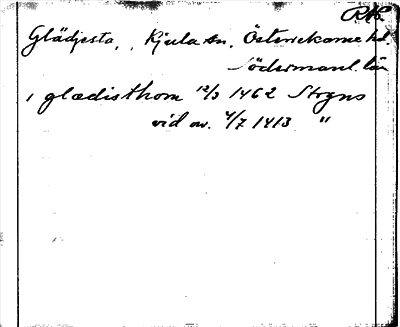 RA.
Glädjesta, , Kjula sn, Österrekarne hd.
Södermanl. län
i glædisthom 12/3 1462 Stregns
vid av. 4/7 1413 "